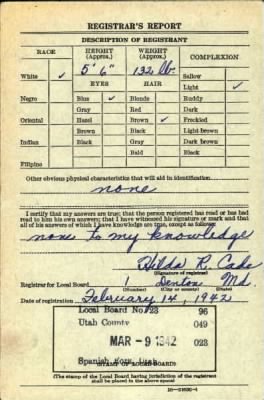 REGISTRAR'S REPORT
DESCRIPTION OF REGISTRANT
RACE HEIGHT (Approx.) WEIGHT (Approx.) COMPLEXION
5' 6" 132 lb.
White ✓ Sallow
EYES HAIR Light ✓
Negro Blue ✓ Blonde Ruddy
Gray Red Dark
Oriental Hazel Brown ✓ Freckled
Brown Black Light brown
Indian Black Gray Dark brown
Bald Black
Filipino
Other obvious physical characteristics that will aid in identification
none
I certify that my answers are true; that the person registered has read or has had
read to him his own answers; that I have witnessed his signature or mark and that
all of his answers of which I have knowledge are true, except as follows:
none to my knowledge
Hilda R.
(Signature of registrar)
Registrar for Local Board 1 Denton Md.
(Number) (City or county) (State)
Date of registration February 14, 1942
Local Board No. 23 96
Utah County 049
MAR - 9 1942 023
Spanish Fork, Utah
(STAMP OF LOCAL BOARD)
(The stamp of the Local Board having jurisdiction of the registrant
shall be placed in the above space)